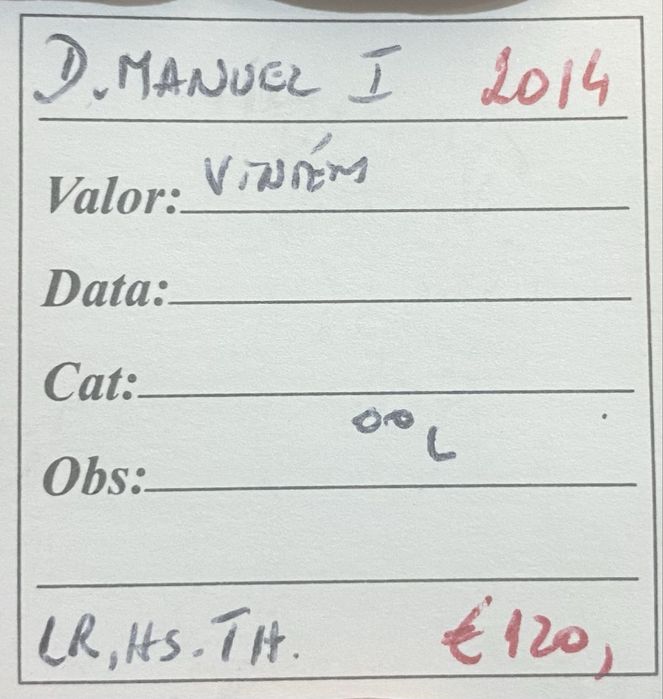 D. MANUEL I 2014
Valor: VINTÉM
Data:
Cat:
ooL
Obs:
LR, HS. TH.
€ 120,